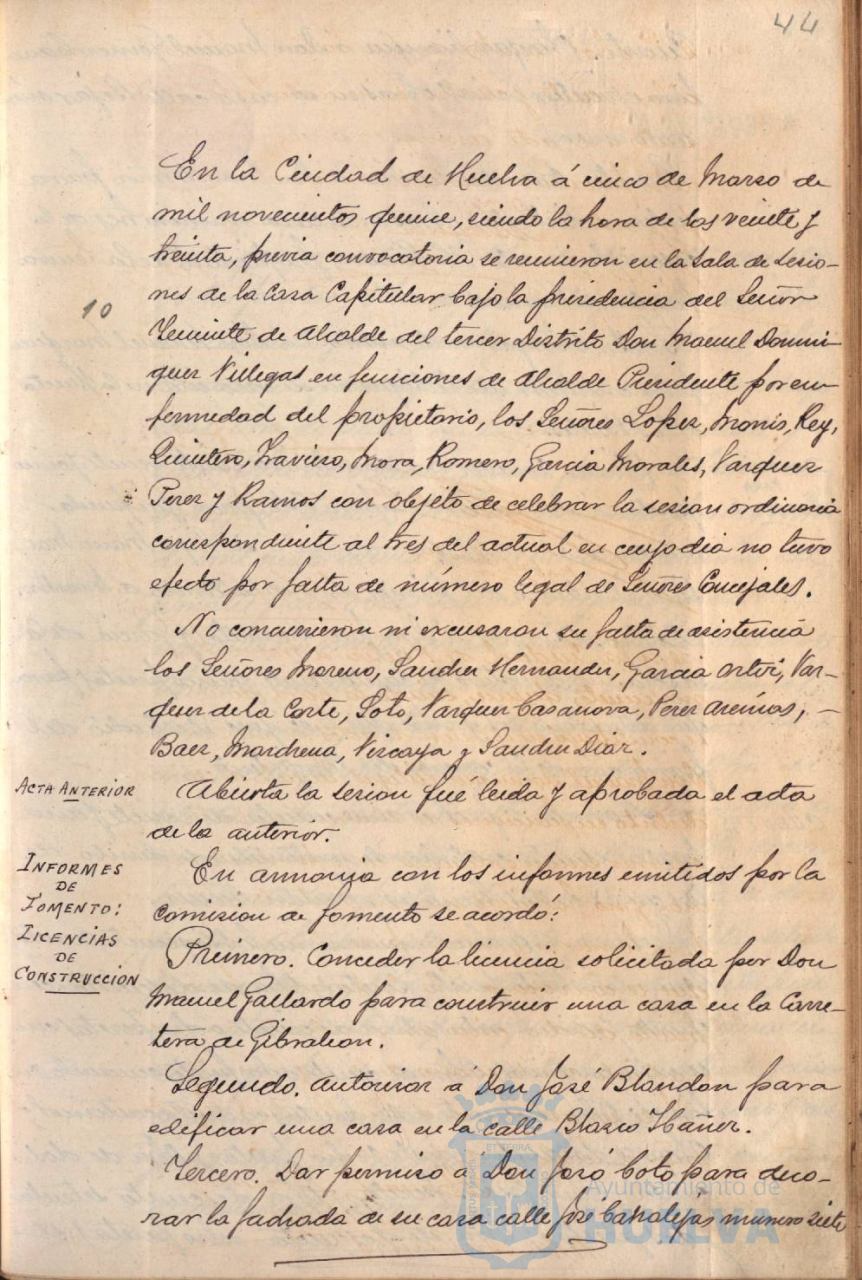 44
En la Ciudad de Huelva á cinco de Marzo de
mil novecientos quince, siendo la hora de las veinte y
treinta, previa convocatoria se reunieron en la Sala de Sesio-
nes de la Casa Capitular bajo la presidencia del Señor
10
Teniente de Alcalde del tercer Distrito Don Manuel Domin-
guez Villegas en funciones de Alcalde Presidente por en-
fermedad del propietario, los Señores Lopez, Monis, Rey,
Quintero, Travieso, Mora, Romero, Garcia Morales, Vazquez
Perez y Ramos con objeto de celebrar la sesion ordinaria
correspondiente al tres del actual en cuyo dia no tuvo
efecto por falta de número legal de Señores Concejales.
No concurrieron ni excusaron su falta de asistencia
los Señores Moreno, Sanchez Hernandez, Garcia Ortiz, Vaz-
quez de la Corte, Soto, Vazquez Casanova, Perez Arenas, -
Baez, Marchena, Vizcaya y Sanchez Diaz.
ACTA ANTERIOR
Abierta la sesion fué leida y aprobada el acta
de la anterior.
INFORMES
DE
FOMENTO:
LICENCIAS
DE
CONSTRUCCION
En armonia con los informes emitidos por la
Comision de fomento se acordó:
Primero. Conceder la licencia solicitada por Don
Manuel Gallardo para construir una casa en la Carre-
tera de Gibraleon.
Segundo. Autorizar á Don José Blandon para
edificar una casa en la calle Blasco Ibáñez.
Tercero. Dar permiso á Don José Boto para deco-
rar la fachada de su casa calle José Canalejas número siete
Ayuntamiento de
HUELVA